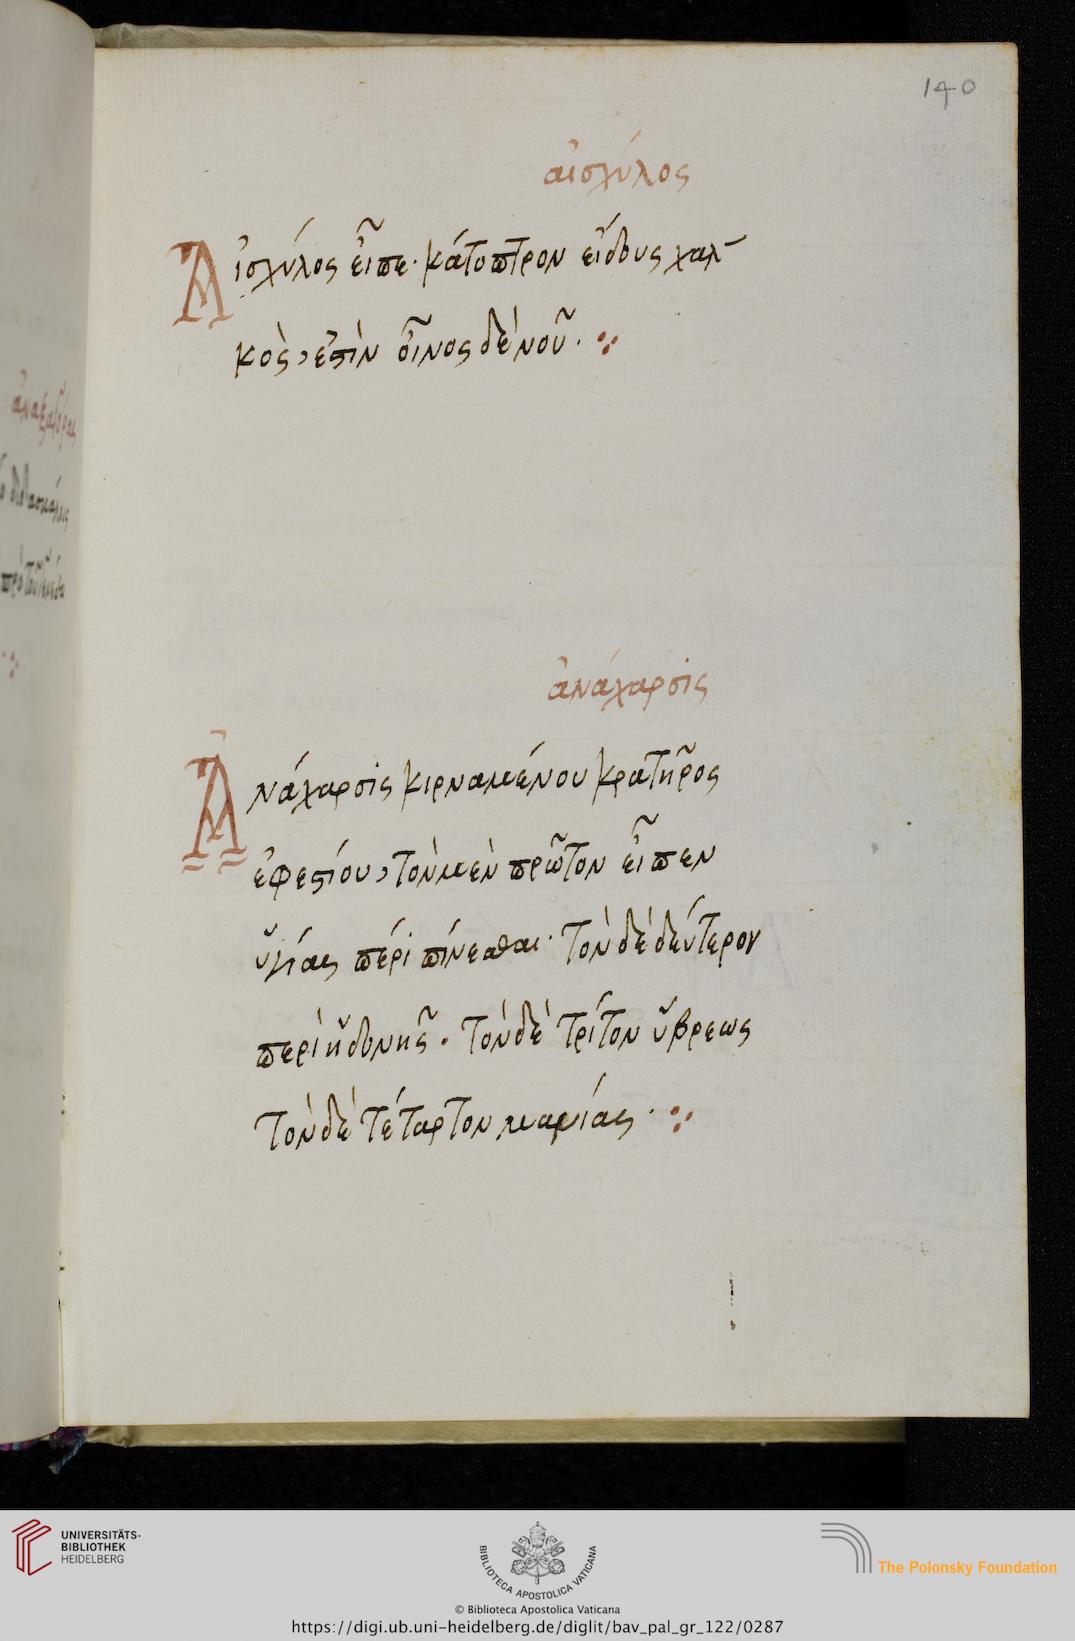 140
αἰσχύλος
Αἰσχύλος εἶπε· κάτοπτρον εἴδους χαλ-
κὸς, ἐστὶν οἶνος δὲ νοῦ.
ἀνάχαρσις
Ἀνάχαρσις κιρναμένου κρατῆρος
ἐφεστίου, τὸν μὲν πρῶτον εἶπεν
ὑγίας περὶ πίνεσθαι· τὸν δὲ δεύτερον
περὶ ἡδονῆς. τὸν δὲ τρίτον ὕβρεως
τὸν δὲ τέταρτον μανίας.
UNIVERSITÄTS-
BIBLIOTHEK
HEIDELBERG
BIBLIOTECA APOSTOLICA VATICANA
The Polonsky Foundation
© Biblioteca Apostolica Vaticana
https://digi.ub.uni-heidelberg.de/diglit/bav_pal_gr_122/0287